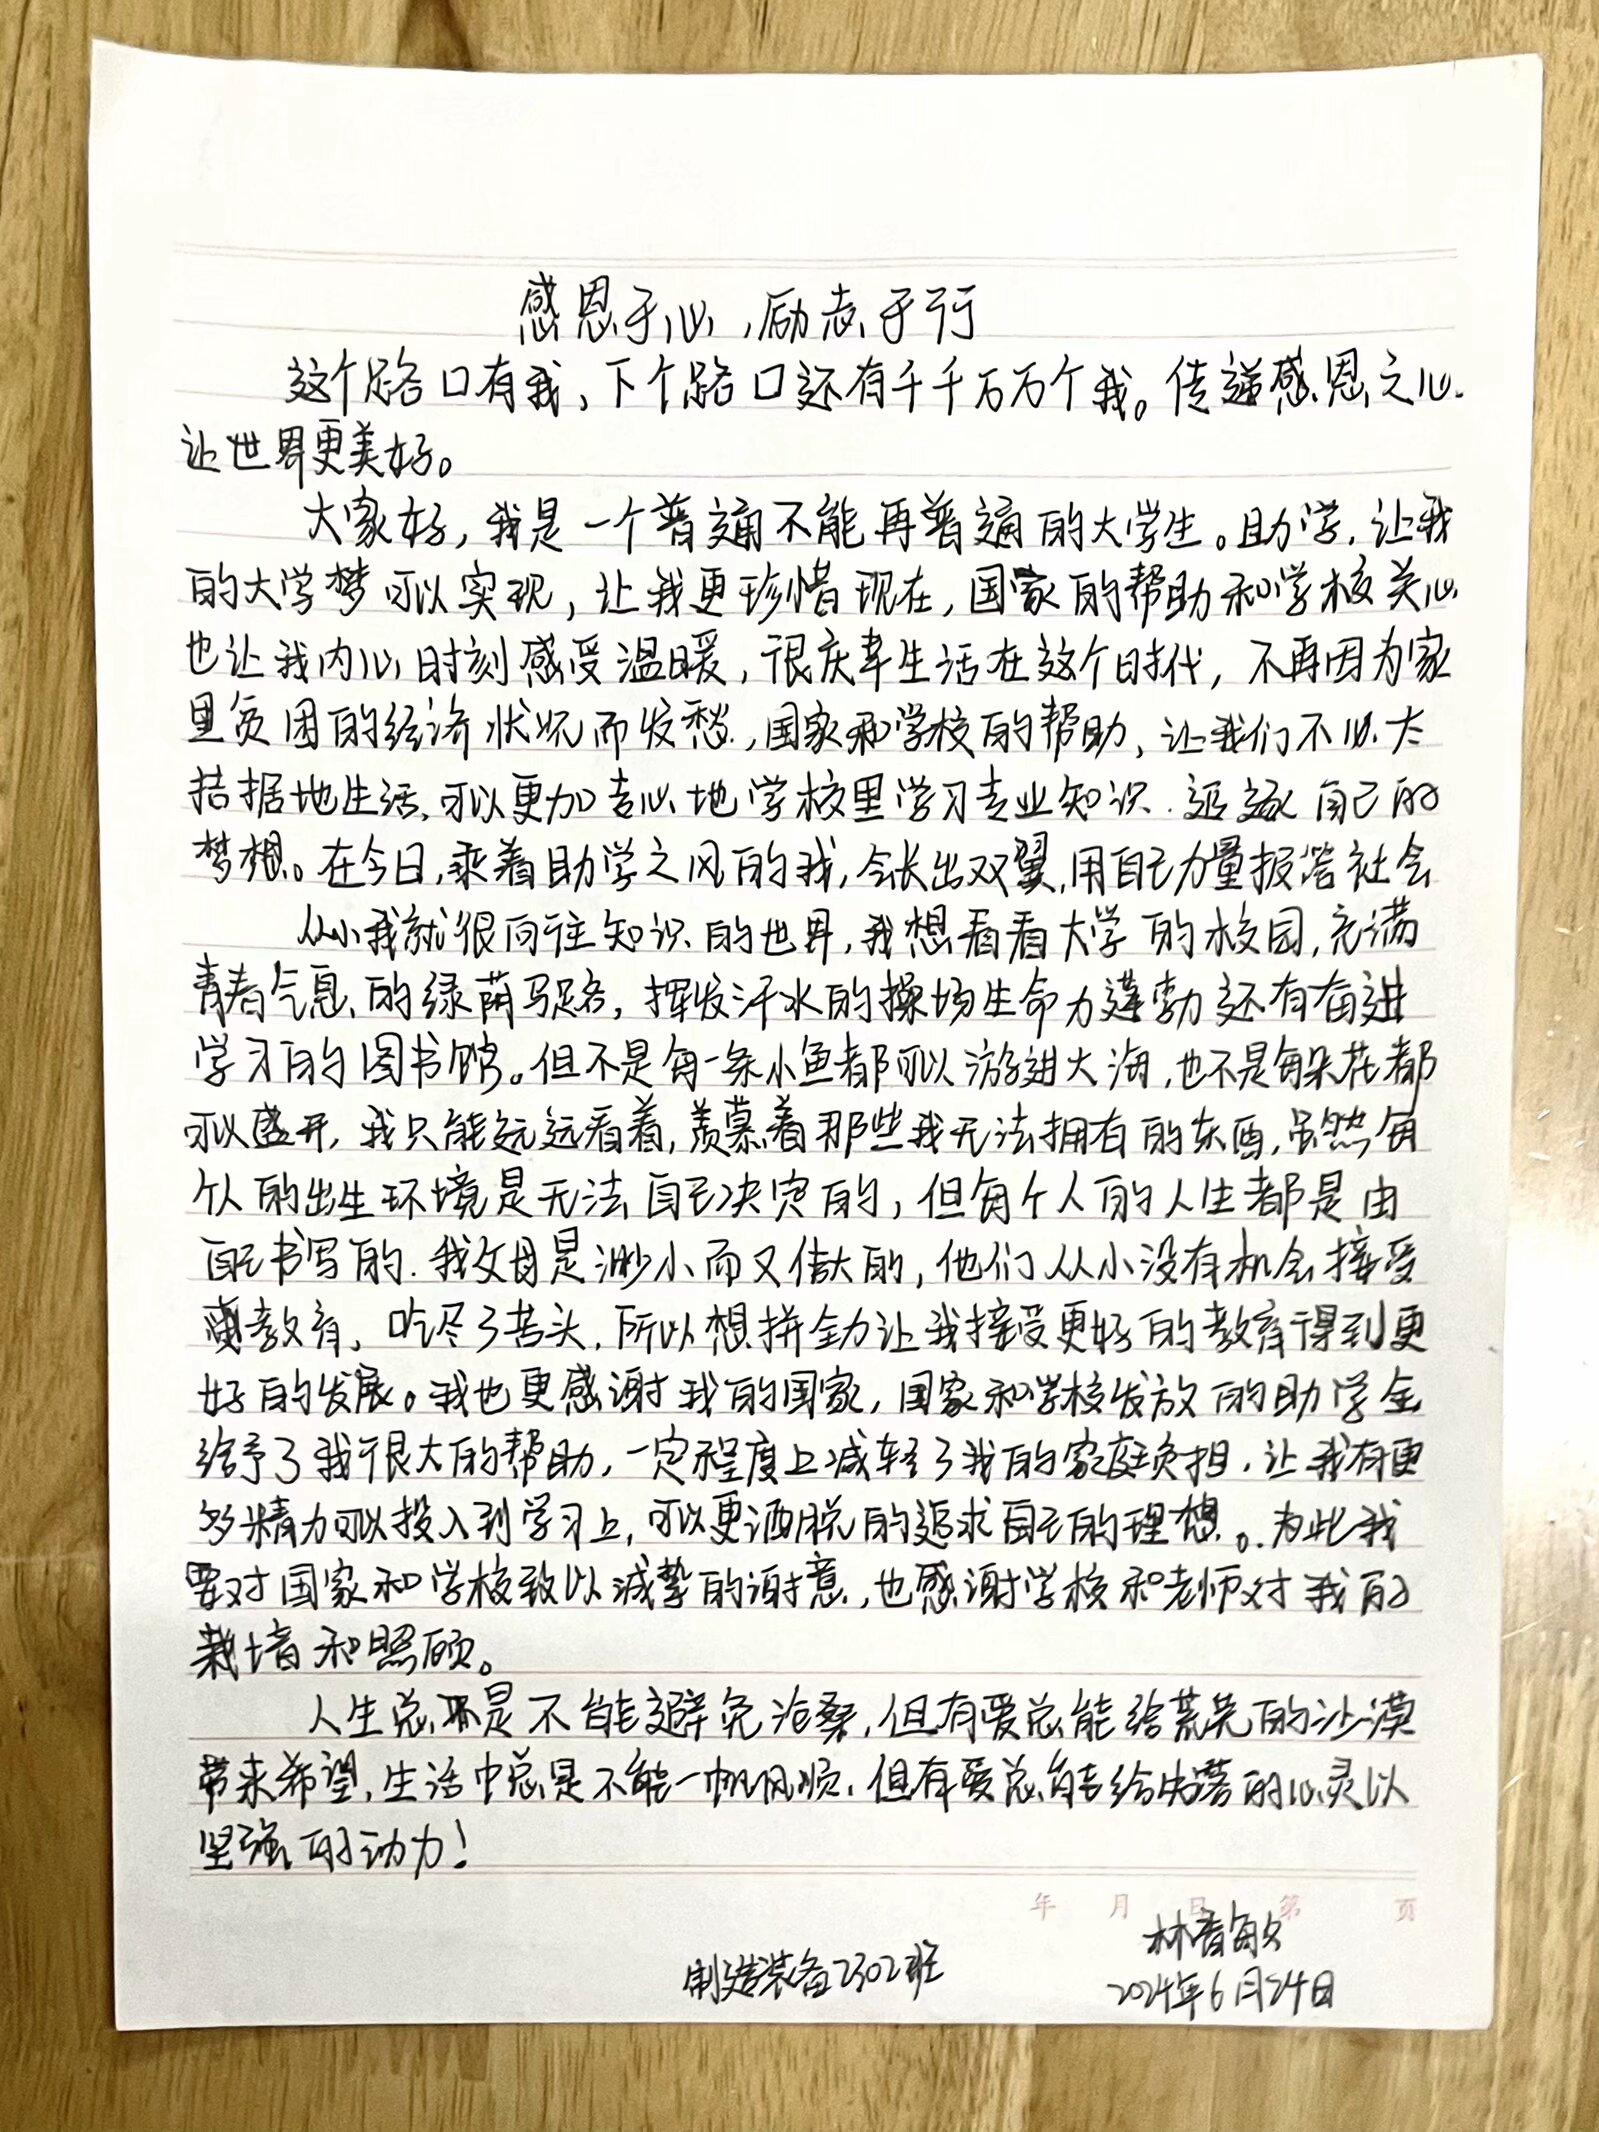 感恩于心,励志于行
这个路口有我、下个路口还有千千万万个我。传递感恩之心.
让世界更美好。
大家好,我是一个普通不能再普通的大学生。助学,让我
的大学梦可以实现,让我更珍惜现在,国家的帮助和学校关心
也让我内心时刻感受温暖,很庆幸生活在这个时代,不再因为家
里贫困的经济状况而发愁,国家和学校的帮助,让我们不必太
拮据地生活,可以更加专心地学校里学习专业知识.追逐自己的
梦想。在今日,乘着助学之风的我,会长出双翼,用自己力量报答社会
从小我就很向往知识的世界,我想看看大学的校园,充满
青春气息的绿荫马路,挥发汗水的操场生命力蓬勃还有奋进
学习的图书馆。但不是每一条小鱼都可以游进大海,也不是每朵花都
可以盛开,我只能远远看着,羡慕着那些我无法拥有的东西,虽然每
个人的出生环境是无法自己决定的,但每个人的人生都是由
自己书写的.我父母是渺小而又伟大的,他们从小没有机会接受
教育,吃尽了苦头,所以想拼全力让我接受更好的教育得到更
好的发展。我也更感谢我的国家,国家和学校发放的助学金
给予了我很大的帮助,一定程度上减轻了我的家庭负担.让我有更
多精力可以投入到学习上,可以更洒脱的追求自己的理想。为此我
要对国家和学校致以诚挚的谢意,也感谢学校和老师对我的
栽培和照顾。
人生总是不能避免沧桑,但有爱总能给荒芜的沙漠
带来希望,生活中总是不能一帆风顺,但有爱总能给失落的心灵以
坚强的动力!
年 月 日 第 页
林香敏
制造装备2302班
2024年6月24日